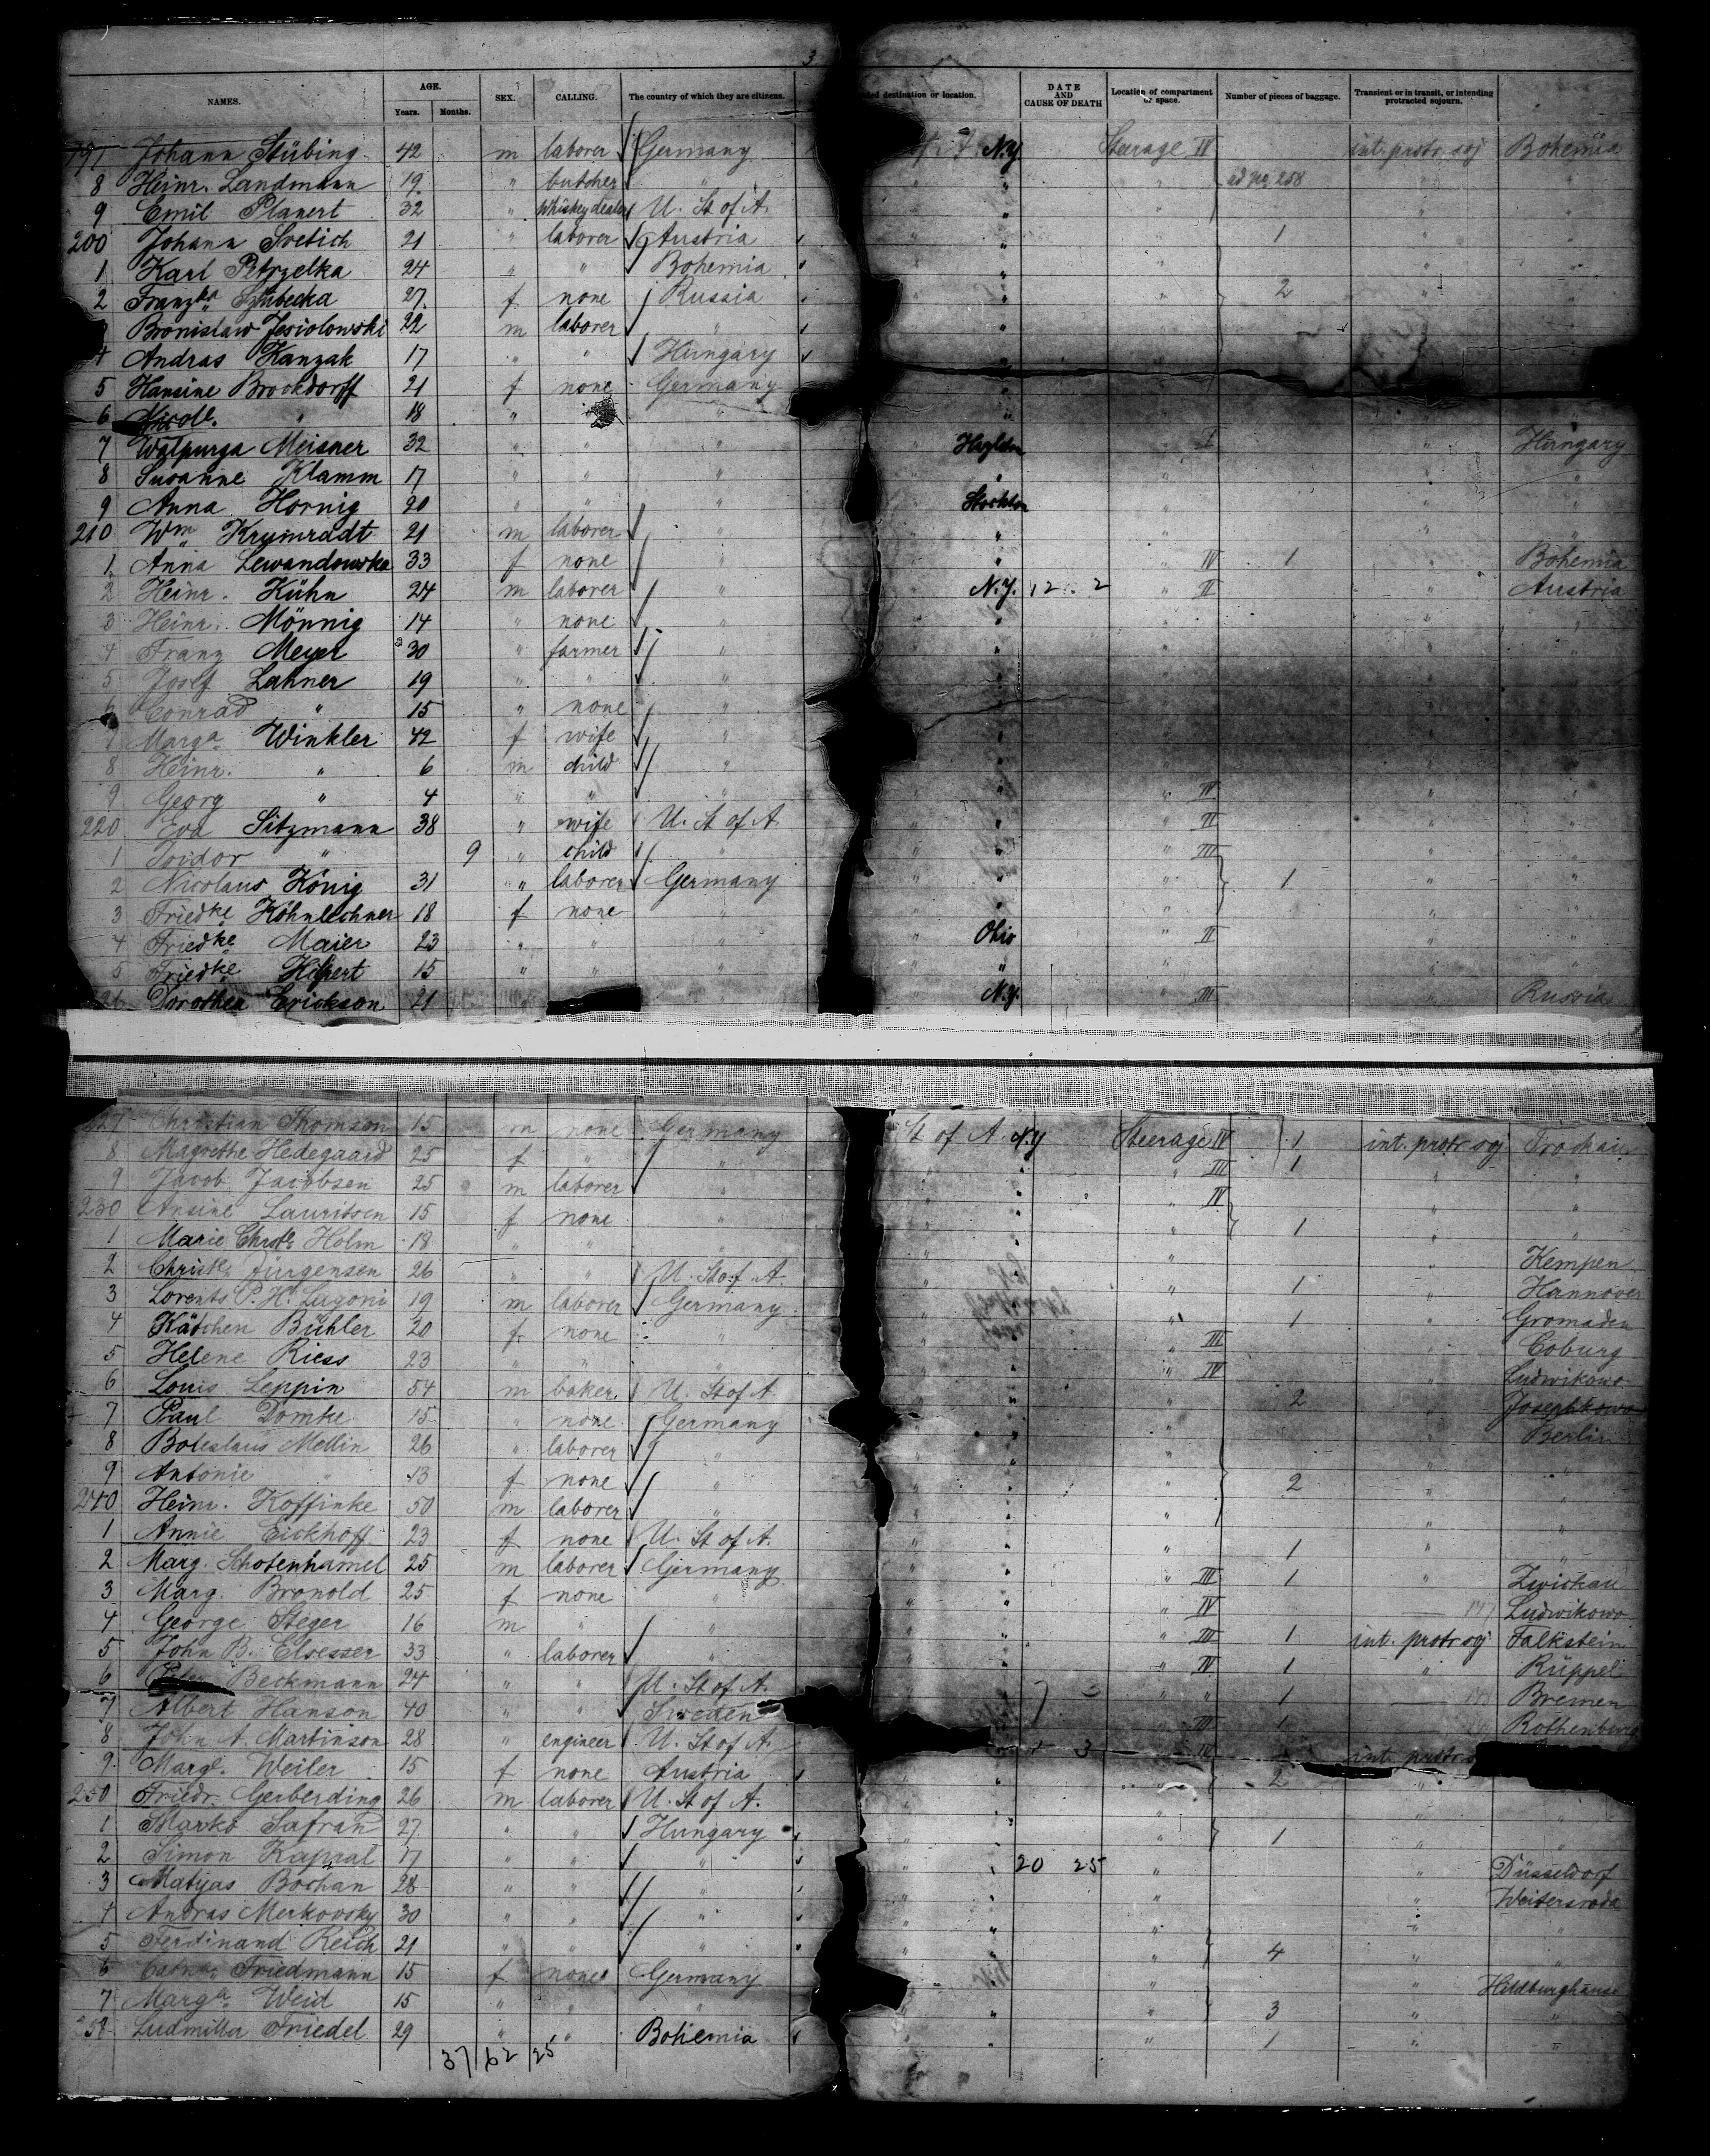 3
NAMES. AGE. Years. Months. SEX. CALLING. The country of which they are citizens. destination or location. DATE AND CAUSE OF DEATH Location of compartment or space. Number of pieces of baggage. Transient or in transit, or intending protracted sojourn.
197 Johann Stübing 42 m laborer Germany N.Y. Steerage IV int. protr. soj Bohemia
8 Heinr. Landmann 19 " butcher " " " ad pag 258 " "
9 Emil Planert 32 " Whiskey dealer U. St of A. " " " "
200 Johann Svetich 21 " laborer Austria " " 1 " "
1 Karl Petrzelka 24 " " Bohemia " " " "
2 Franzka 27 f none Russia " " 2 " "
Bronislaw 22 m laborer " "
4 Andras Kanzak 17 " " Hungary
5 Hansine Brockdorff 21 f none Germany
6 Nicol. " 18 " "
7 Walpurga Meisner 32 " " " Hazleton I " Hungary
8 Susanne Klamm 17 " " " " " "
9 Anna Hornig 20 " " " Stockton " " "
210 Wm Krumradt 21 m laborer " " " " "
1 Anna Lewandowska 33 f none " " " IV 1 " Bohemia
2 Heinr. Kühn 24 m laborer " N.Y. 12 . 2 " II " Austria
3 Heinr. Mönnig 14 " none " " " "
4 Franz Meyer 30 " farmer " " "
5 Josef Lahner 19 " " " "
6 Conrad " 15 " none " "
7 Marga Winkler 42 f wife " "
8 Heinr. " 6 m child " "
9 Georg " 4 " " " " " IV " "
220 Eva Sitzmann 38 " wife U. St of A " " II " "
1 Isidor " 9 " child " " " III " "
2 Nicolaus König 31 " laborer Germany " " 1 " "
3 Friedke Köhnlechner 18 f none " " " " "
4 Friedke Maier 23 " " " Ohio " II " "
5 Friedke Hilpert 15 " " " " " " "
26 Dorothea Erickson 21 N.Y. " III " Russia
227 Christian Thomsen 15 m none Germany St of A. N.Y Steerage IV 1 int. protr soj
8 Magrethe Hedegaard 25 f " " " " " III 1 " "
9 Jacob Jacobsen 25 m laborer " " " " IV " "
230 Ansine Lauritsen 15 f none " " " " 1 " "
1 Marie Chrste Holm 18 " " " " " " " Kempen
2 Christe Jürgensen 26 " " U. St of A. " " " 1 " Hannover
3 Lorents P. H. Lugoni 19 m laborer Germany " " " 1 " Gromaden
4 Kätchen Bühler 20 f none " " " III " Coburg
5 Helene Riess 23 " " " " " IV " Ludwikowo
6 Louis Leppin 54 m baker. U. St of A " " " 2 " Josephkowo
7 Paul Domke 15 " none Germany " " " " Berlin
8 Boleslaus Mellin 26 " laborer " " " " " "
9 Antonie " 13 f none " " " " 2 " "
240 Heinr. Koffinke 50 m laborer " " " " " "
1 Annie Eickhoff 23 f none U. St of A. " " " 1 " "
2 Marg. Schotenhamel 25 m laborer Germany " " " III 1 " Zwickau
3 Marg. Bronold 25 f none " " " " IV 147 Ludwikowo
4 George Steger 16 m " " " " " III 1 int. protr soj Falkstein
5 John B. Elsesser 33 " laborer " " " " IV 1 " Rüppel
6 Beckmann 24 " " U. St of A. " 3 " " 1 Bremen
7 Albert Hanson 40 " " Sweden III 1 Rothenburg
8 John A. Martinson 28 " engineer U. St of A. + 3 IV int. protr
9 Margt. Weiler 15 f none Austria " " 2 "
250 Friedr. Gerberding 26 m laborer U. St of A. " " " "
1 Marko Safran 27 " " Hungary " " " 1 " "
2 Simon Kapral 17 " " " " " 20 25 " " Düsseldorf
3 Matyas Bochan 28 " " " " " " " Weitersroda
4 Andras Merkovsky 30 " " " " " " " "
5 Ferdinand Reich 21 " " " " " " 4 " "
6 Cathna Friedmann 15 f none Germany " " " " Hildburghause
7 Marga Weid 15 " " " " " " 3 " "
258 Ludmilla Friedel 29 " " Bohemia " " 1 " "
37 62 25